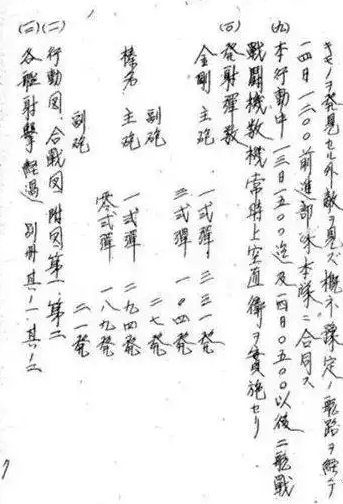 キモノヲ発見セル外敵ヲ見ズ概ネ豫定ノ航路ヲ経テ
一四日一三〇〇前進部隊本隊ニ合同ス
(九)本行動中一三日一五〇〇迄及一四日〇五〇〇以後二航戦
戦闘機数機常時上空直衛ヲ実施セリ
(十)発射弾数
金剛 主砲 一式弾 三三一発
三式弾 一〇四発
副砲 二七発
榛名 主砲 一式弾 二九四発
零式弾 一八九発
副砲 二一発
(二)行動図、合戦図 附図第一、第二
(三)各艦射撃経過 別冊其ノ一、其ノ二
7